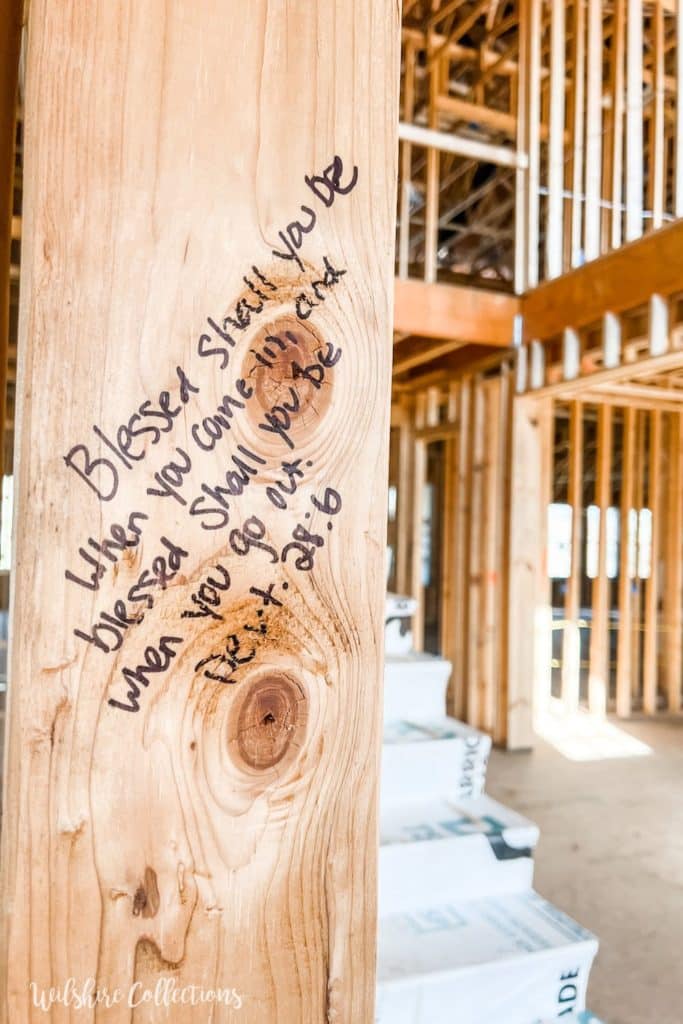 Blessed Shall you be
when you come in, and
blessed Shall you be
when you go out.
Deut. 28:6
Wilshire Collections